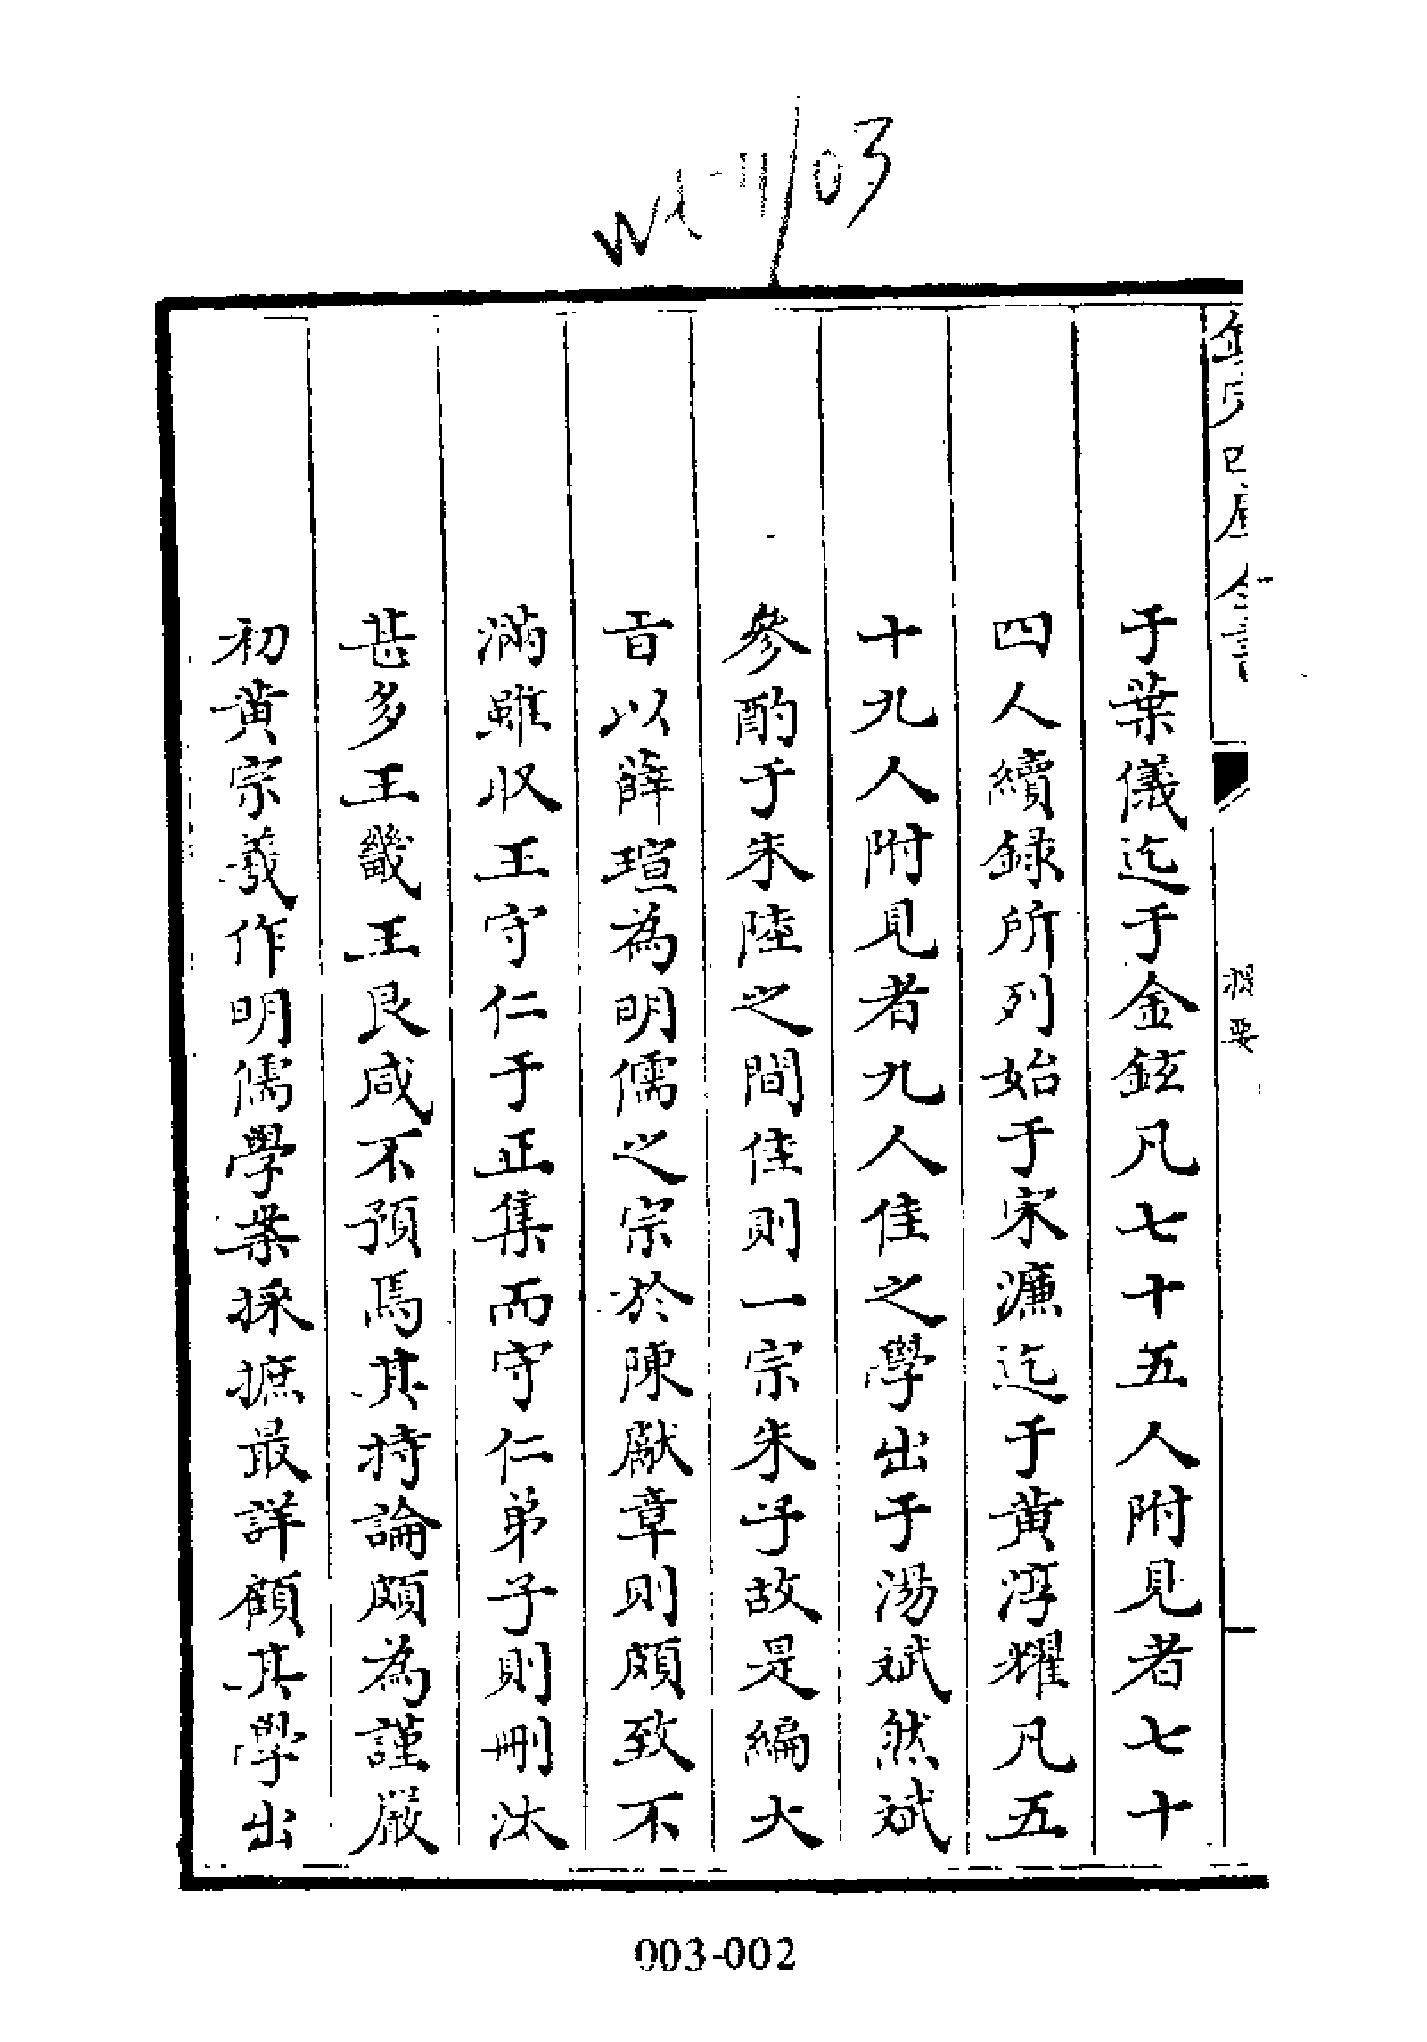 欽定四庫全書
提要
于葉儀迄于金鉉凡七十五人附見者七十
四人續録所列始于宋濂迄于黄淳耀凡五
十九人附見者九人佳之學出于湯斌然斌
參酌于朱陸之間佳則一宗朱子故是編大
旨以薛瑄為明儒之宗於陳獻章則頗致不
滿雖收王守仁于正集而守仁弟子則刪汰
甚多王畿王艮咸不預焉其持論頗為謹嚴
初黄宗羲作明儒學案採摭最詳顧其學出
003-002